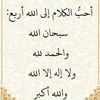 أحبُّ الكلام إلى الله أربع:
سبحان الله
والحمد لله
ولا إله إلا الله
والله أكبر